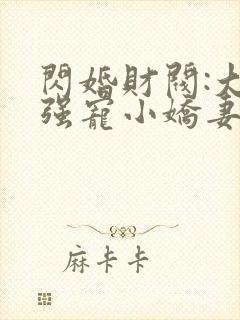 閃婚財閥:大
强寵小嬌妻
麻卡卡